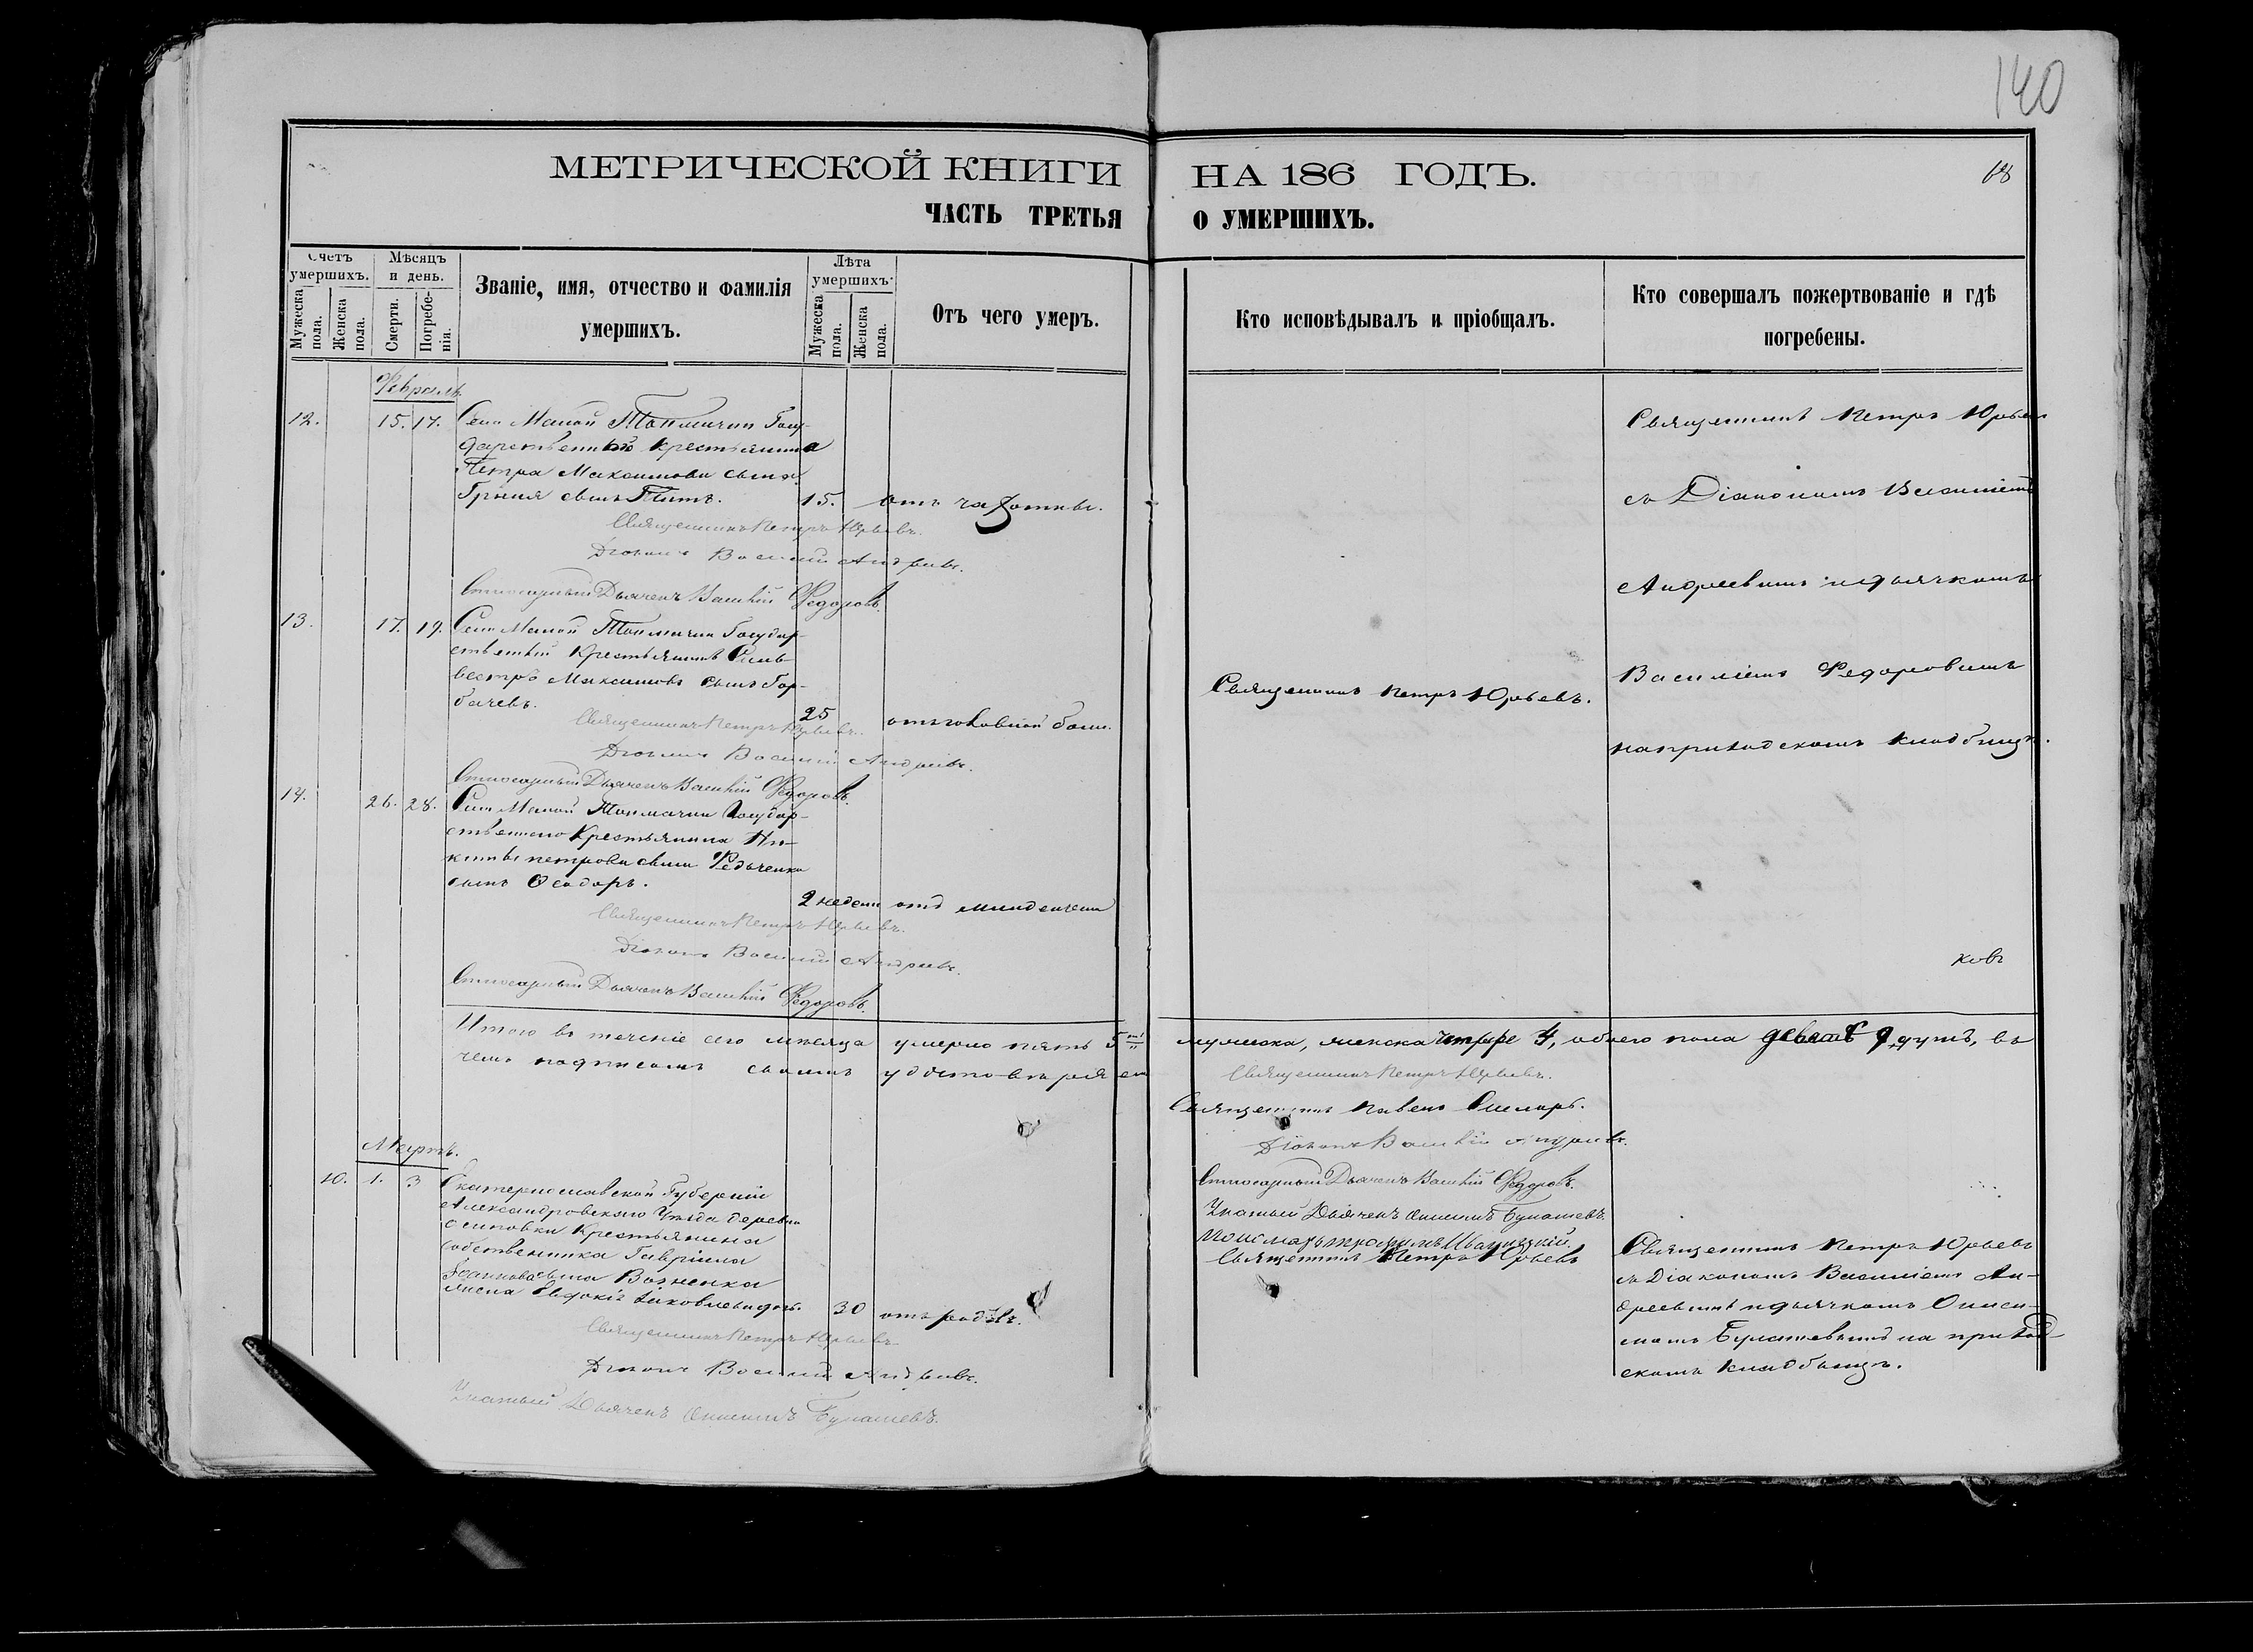 140
МЕТРИЧЕСКОЙ КНИГИ НА 186 ГОДЪ.
18
ЧАСТЬ ТРЕТЬЯ О УМЕРШИХЪ.
Счетъ умершихъ.
Мужеска пола.
Женска пола.
Мѣсяцъ и день.
Смерти.
Погребенія.
Званіе, имя, отчество и фамилія
умершихъ.
Лѣта умершихъ.
Мужеска пола.
Женска пола.
Отъ чего умеръ.
Кто исповѣдывалъ и пріобщалъ.
Кто совершалъ пожертвованіе и гдѣ
погребены.
Февраль.
12. 15. 17. Села Малой Токмачки Госу-
дарственнаго крестьянина
Петра Максимова сына
сынъ Титъ. 15. отъ чахотки.
Священникъ Петръ Юрьевъ.
Діаконъ Василій Андреевъ.
Дьячекъ Василій Федоровъ.
Священникъ Петръ Юрьевъ
съ Діакономъ Василіемъ
Андреевымъ и дьячкомъ
Василіемъ Федоровымъ
на приходскомъ кладбищѣ.
13. 17. 19. Села Малой Токмачки Государ-
ственный Крестьянинъ Силь-
вестръ Максимовъ сынъ Гор-
бачевъ. 25 отъ головной боли.
Священникъ Петръ Юрьевъ.
Священникъ Петръ Юрьевъ.
Діаконъ Василій Андреевъ.
Дьячекъ Василій Федоровъ.
14. 26. 28. Села Малой Токмачки Государ-
ственнаго Крестьянина Ни-
киты петрова сына Федченка
сынъ Ѳеодоръ.
2 недели отъ
Священникъ Петръ Юрьевъ.
Діаконъ Василій Андреевъ.
Дьячекъ Василій Федоровъ.
ковъ
Итого въ теченіе сего мѣсяца умерло пять 5 мужеска, женска четыре 4, обоего пола девять 9 душъ, въ
чемъ подписомъ своимъ
Священникъ Петръ Юрьевъ.
Священникъ Павелъ
Діаконъ Василій Андреевъ.
Дьячекъ Василій Федоровъ.
Дьячекъ Онисимъ Булашевъ.
Мартъ.
10. 1. 3 Екатеринославской Губерніи
Александровскаго Уѣзда деревни
Осиповки Крестьянина
собственника Гавріила
Іоаннова сына
жена Евдокія Іаковлева дочь. 30 отъ родовъ.
Священникъ Петръ Юрьевъ.
Діаконъ Василій Андреевъ.
Дьячекъ Онисимъ Булашевъ.
Священникъ Петръ Юрьевъ
Священникъ Петръ Юрьевъ
съ Діакономъ Василіемъ Ан-
дреевымъ и дьячкомъ Ониси-
момъ Булашевымъ на приход-
скомъ кладбищѣ.